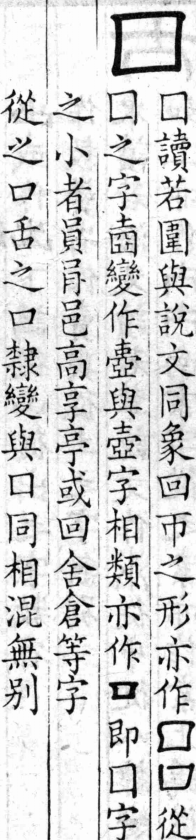 囗
囗讀若圍與說文同象回帀之形亦作囗囗從
囗之字壷變作壼與壺字相類亦作囗即囗字
之小者員肙邑高享亭或回舍倉等字
從之口舌之口隸變與囗同相混無别